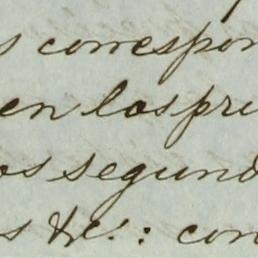 s correspon
en los pri
os segund
s &c.: con